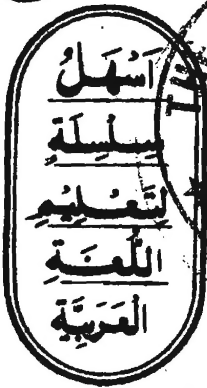 اَسْهَلُ
سِلْسِلَةٍ
لِتَعْلِيْمِ
اللُّغَةِ
العَرَبِيَّةِ